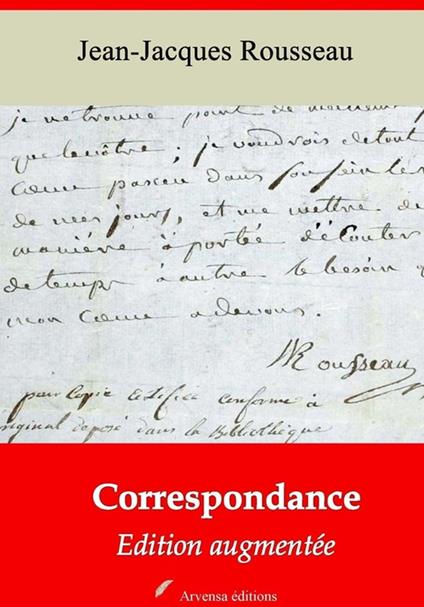 Jean-Jacques Rousseau
je ne trouve point de
que le nôtre ; je voudrois de tout
cœur passer dans son sein le
de mes jours, et me mettre de
maniére à portée d'écouter
de temps à autre le besoin q
mon cœur a de vous.
JJRousseau
pour copie certifiée conforme à
original deposé dans la Bibliothèque
Correspondance
Edition augmentée
Arvensa éditions